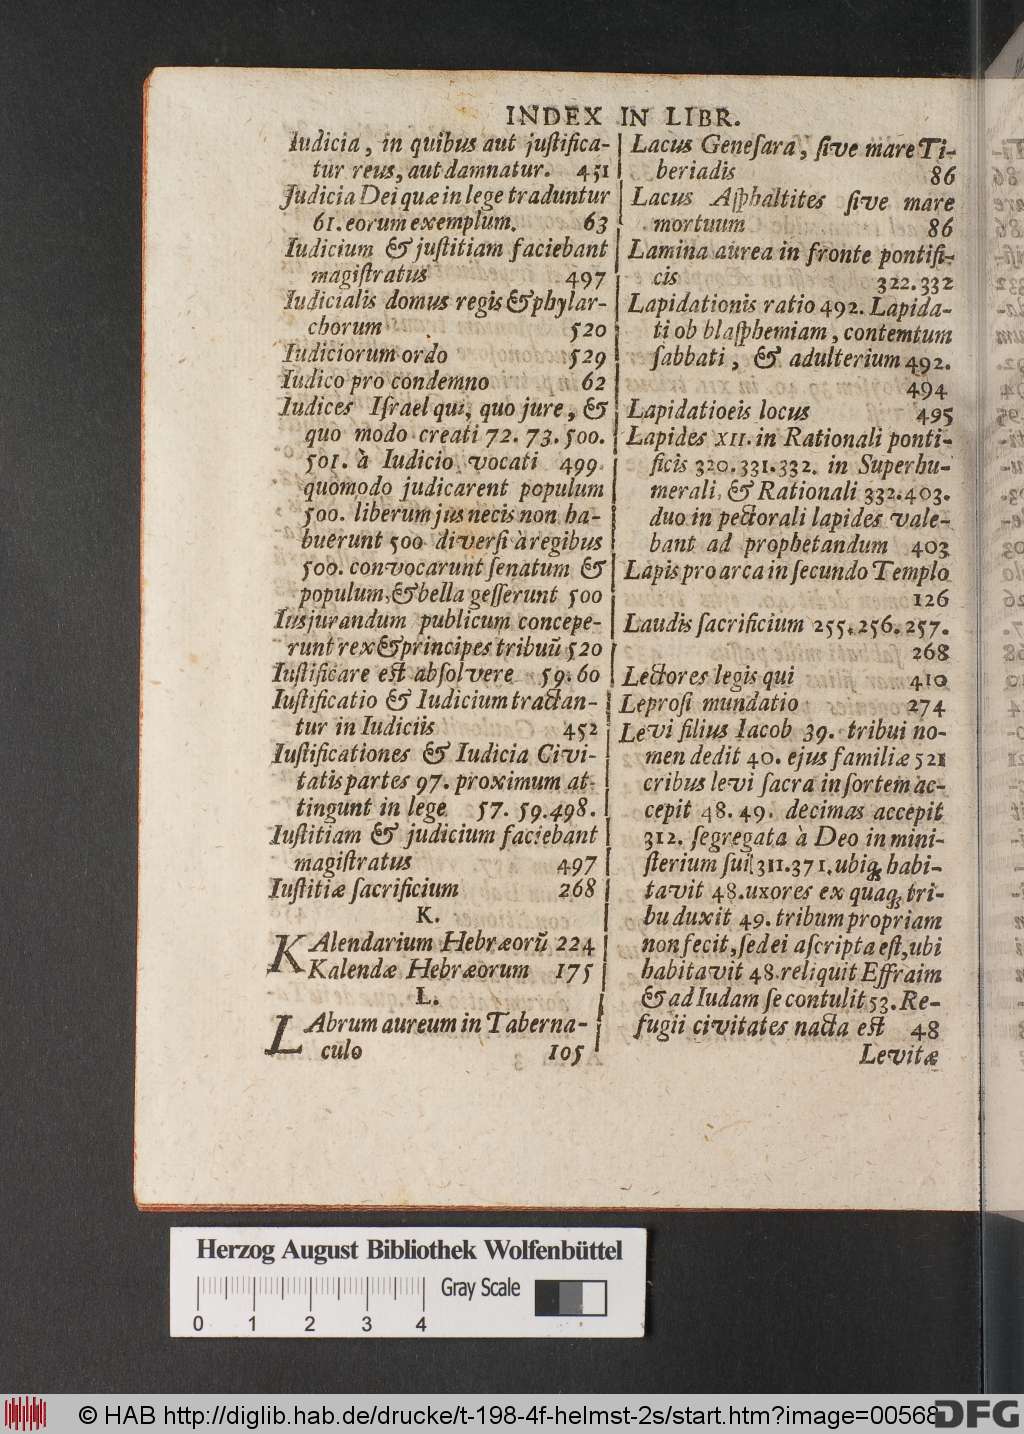 INDEX IN LIBR.
Iudicia, in quibus aut juſtifica-
tur reus, aut damnatur. 451
Judicia Dei quæ in lege traduntur
61. eorum exemplum. 63
Iudicium & juſtitiam faciebant
magiſtratus 497
Iudicialis domus regis & phylar-
chorum 520
Iudiciorum ordo 529
Iudico pro condemno 62
Iudices Iſrael qui, quo jure, &
quo modo creati 72. 73. 500.
501. à Iudicio vocati 499
quomodo judicarent populum
500. liberum jus necis non ha-
buerunt 500 diverſi à regibus
500. convocarunt ſenatum &
populum, & bella geſſerunt 500
Iusjurandum publicum concepe-
runt rex & principes tribuū 520
Iuſtificare eſt abſolvere 59. 60
Iuſtificatio & Iudicium tractan-
tur in Iudiciis 452
Iuſtificationes & Iudicia Civi-
tatis partes 97. proximum at-
tingunt in lege 57. 59. 498.
Iuſtitiam & judicium faciebant
magiſtratus 497
Iuſtitiæ ſacrificium 268
K.
KAlendarium Hebræorū 224
Kalendæ Hebræorum 175
L.
LAbrum aureum in Taberna-
culo 105
Lacus Geneſara, ſive mare Ti-
beriadis 86
Lacus Aſphaltites ſive mare
mortuum 86
Lamina aurea in fronte pontifi-
cis 322. 332
Lapidationis ratio 492. Lapida-
ti ob blaſphemiam, contemtum
ſabbati, & adulterium 492.
494
Lapidatioeis locus 495
Lapides XII. in Rationali ponti-
ficis 320. 331. 332. in Superhu-
merali, & Rationali 332. 403.
duo in pectorali lapides vale-
bant ad prophetandum 403
Lapis pro arca in ſecundo Templo
126
Laudis ſacrificium 255. 256. 257.
268
Lectores legis qui 410
Leproſi mundatio 274
Levi filius Iacob 39. tribui no-
men dedit 40. ejus familiæ 521
cribus levi ſacra in ſortem ac-
cepit 48. 49. decimas accepit
312. ſegregata à Deo in mini-
ſterium ſui 311. 371. ubiq; habi-
tavit 48. uxores ex quaq; tri-
bu duxit 49. tribum propriam
non fecit, ſed ei aſcripta eſt, ubi
habitavit 48. reliquit Effraim
& ad Iudam ſe contulit 53. Re-
fugii civitates nacta eſt 48
Levitæ
Herzog August Bibliothek Wolfenbüttel
Gray Scale
0 1 2 3 4
© HAB http://diglib.hab.de/drucke/t-198-4f-helmst-2s/start.htm?image=00568
DFG